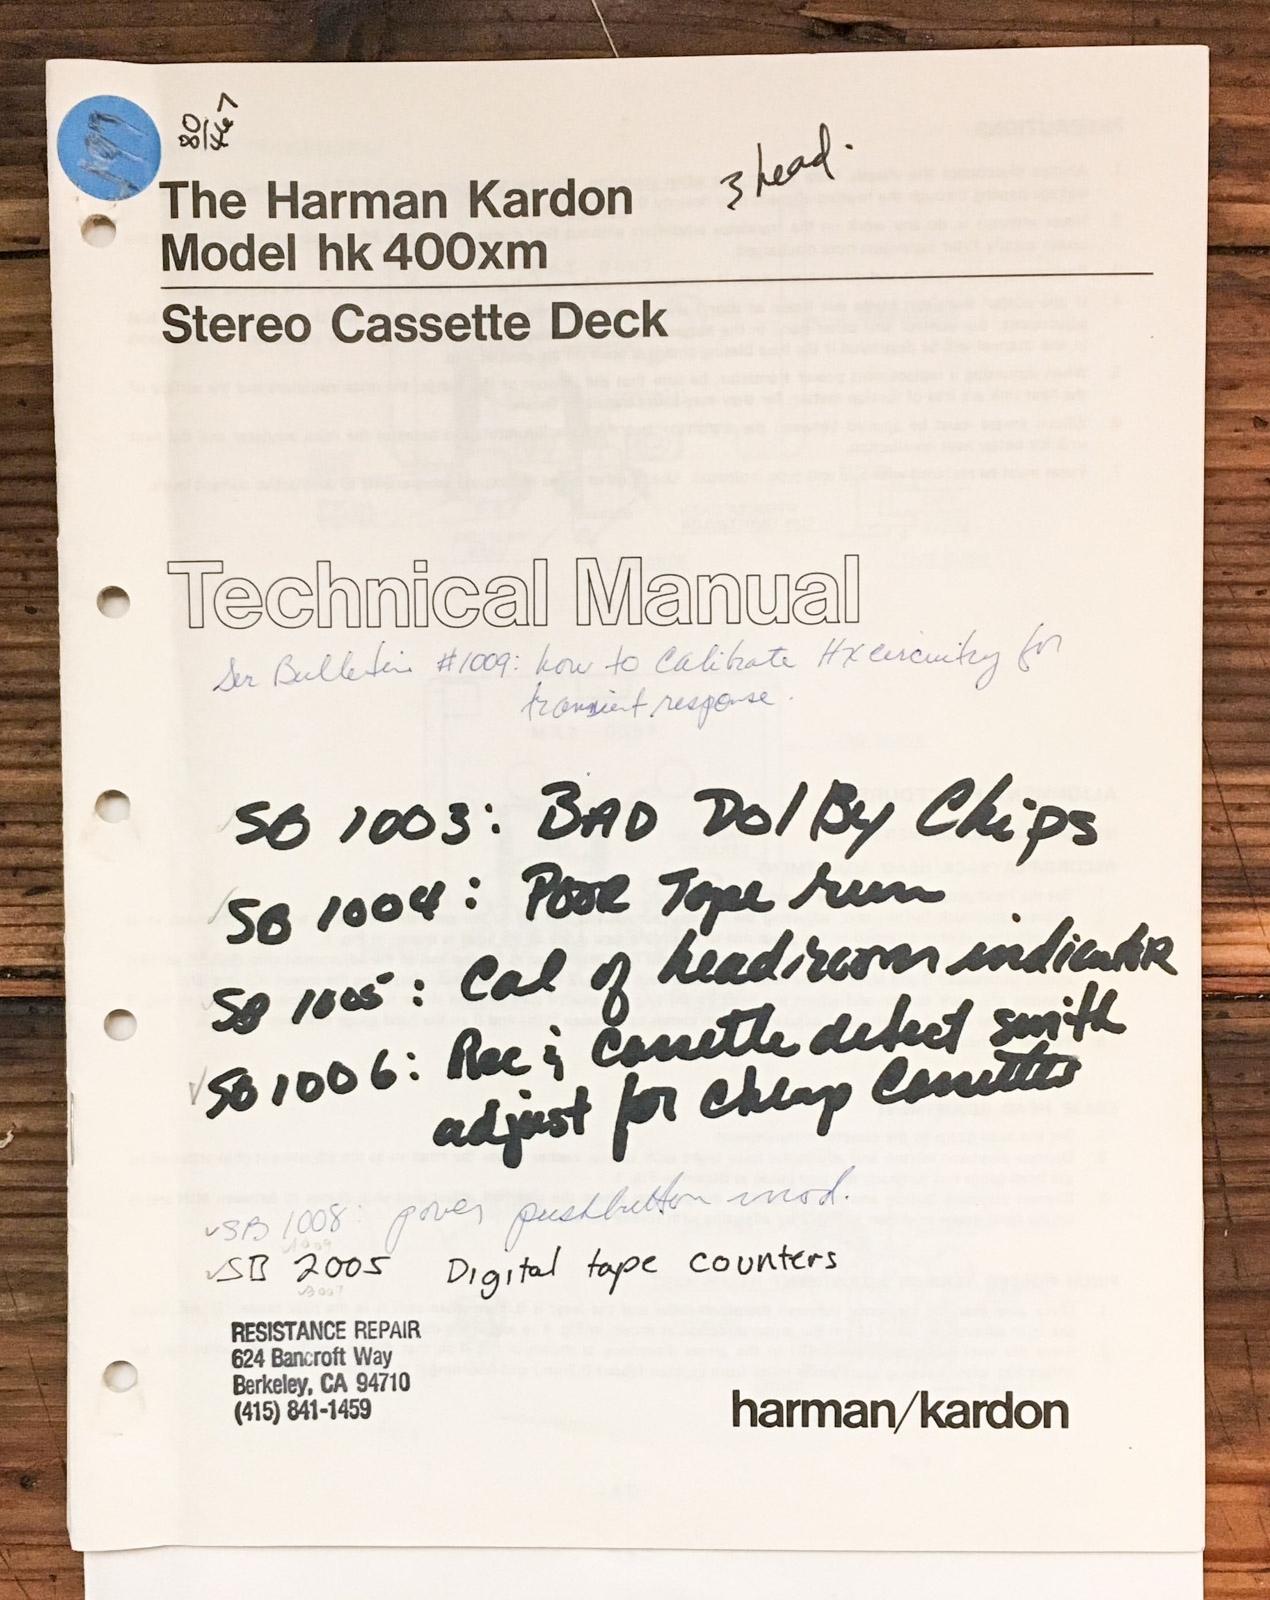 80/467
3 head.
The Harman Kardon
Model hk 400xm
Stereo Cassette Deck
Technical Manual
Ser Bulletin #1009: how to calibrate HX circuitry for
transient response.
SB 1003: BAD DolBy Chips
SB 1004: POOR Tape run
SB 1005: Cal of headroom indicatoR
SB 1006: Rec & Cassette detect swith
adjust for cheap Cassettes
SB 1008: power pushbutton mod.
SB 2005 Digital tape counters
RESISTANCE REPAIR
624 Bancroft Way
Berkeley, CA 94710
(415) 841-1459
harman/kardon